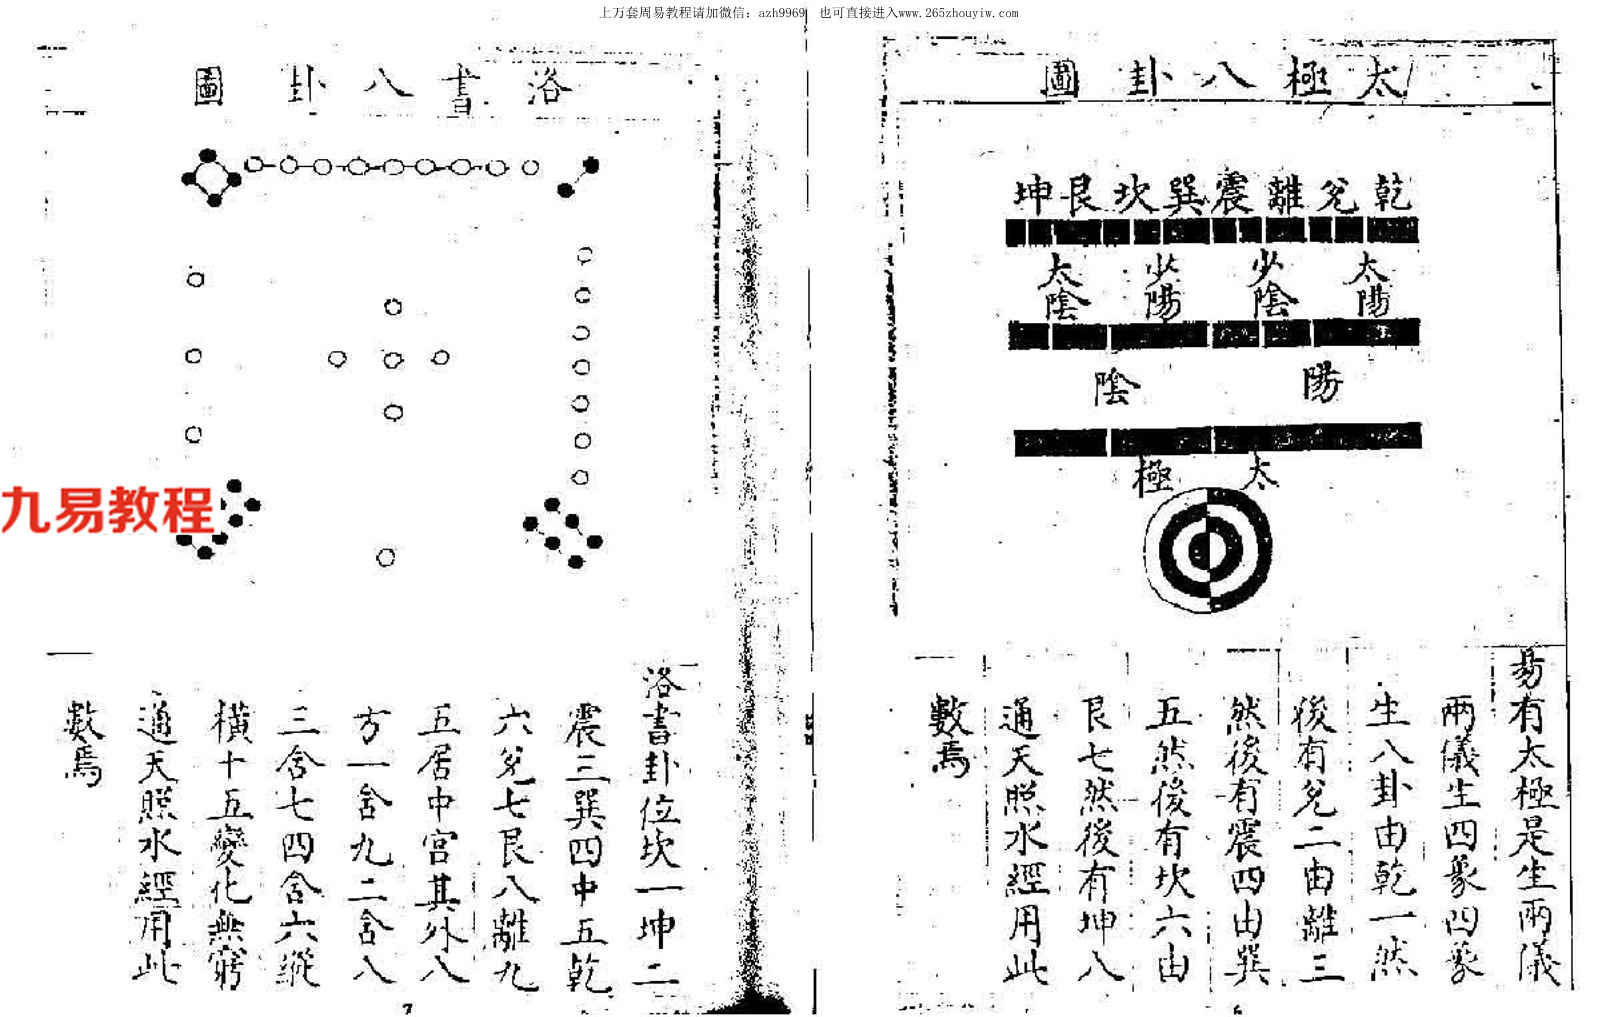 上万套周易教程请加微信：azh9969　也可直接进入www.265zhouyiw.com
太極八卦圖
乾兌離震巽坎艮坤
太陽 少陰 少陽 太陰
陽 陰
太極
易有太極是生兩儀
兩儀生四象四象
生八卦由乾一然
後有兌二由離三
然後有震四由巽
五然後有坎六由
艮七然後有坤八
通天照水經用此
數焉
6
洛書八卦圖
九易教程
洛書卦位坎一坤二
震三巽四中五乾
六兌七艮八離九
五居中宮其外八
方一含九二含八
三含七四含六縱
橫十五變化無窮
通天照水經用此
數焉
7